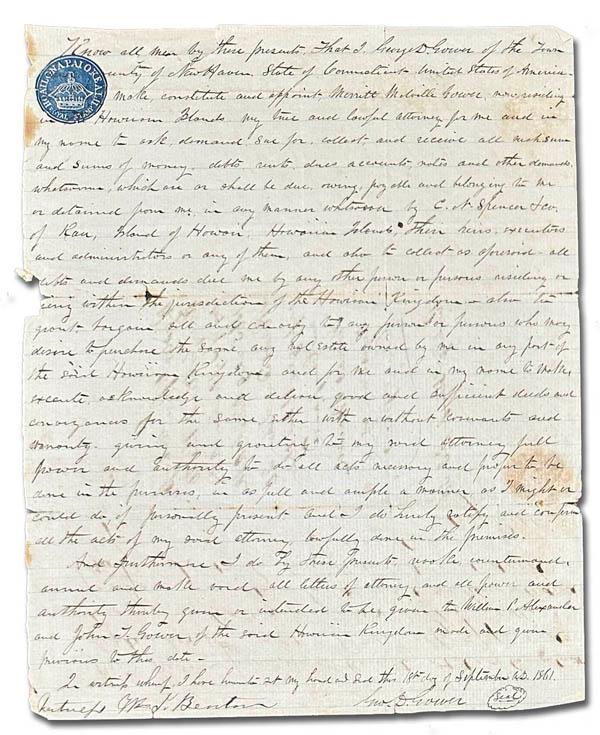 Know all men by these presents, That I, George D. Gower of the Town
County of New Haven, State of Connecticut United States of America
make, constitute and appoint Merritt Melville Gower, now residing
in Hawaiian Islands my true and lawful attorney for me and in
my name to ask, demand, sue for, collect and receive all such sum
and sums of money, debts rents, dues accounts, notes and other demands,
whatsoever, which are or shall be due, owing, payable and belonging to me
or detained from me, in any manner whatsoever by C. N. Spencer & co.
of Kau, Island of Hawaii, Hawaiian Islands their heirs, executors
and administrators or any of them, and also to collect as aforesaid all
debts and demands due me by any other person or persons residing or
being within the jurisdiction of the Hawaiian Kingdom - also to
grant bargain sell and convey to any person or persons who may
desire to purchase the same, any real Estate owned by me in any part of
the said Hawaiian Kingdom and for me and in my name to make,
execute, acknowledge and deliver good and sufficient deeds and
conveyances for the same, either with or without covenants and
warranty giving and granting to my said attorney full
power and authority to do all acts necessary and proper to be
done in the premises, in as full and ample a manner, as I might or
could do if personally present and I do hereby ratify and confirm
all the acts of my said attorney, lawfully done in the premises.
And furthermore I do by these presents, revoke, countermand,
annul and make void all letters of attorney, and all power and
authority thereby given or intended to be given to William P. Alexander
and John T. Gower, of the said Hawaiian Kingdom made and given
previous to this date -
In witness whereof, I have hereunto set my hand and seal this 18th day of September A.D. 1861.
Witness Wm T. Benton Geo. D. Gower Seal